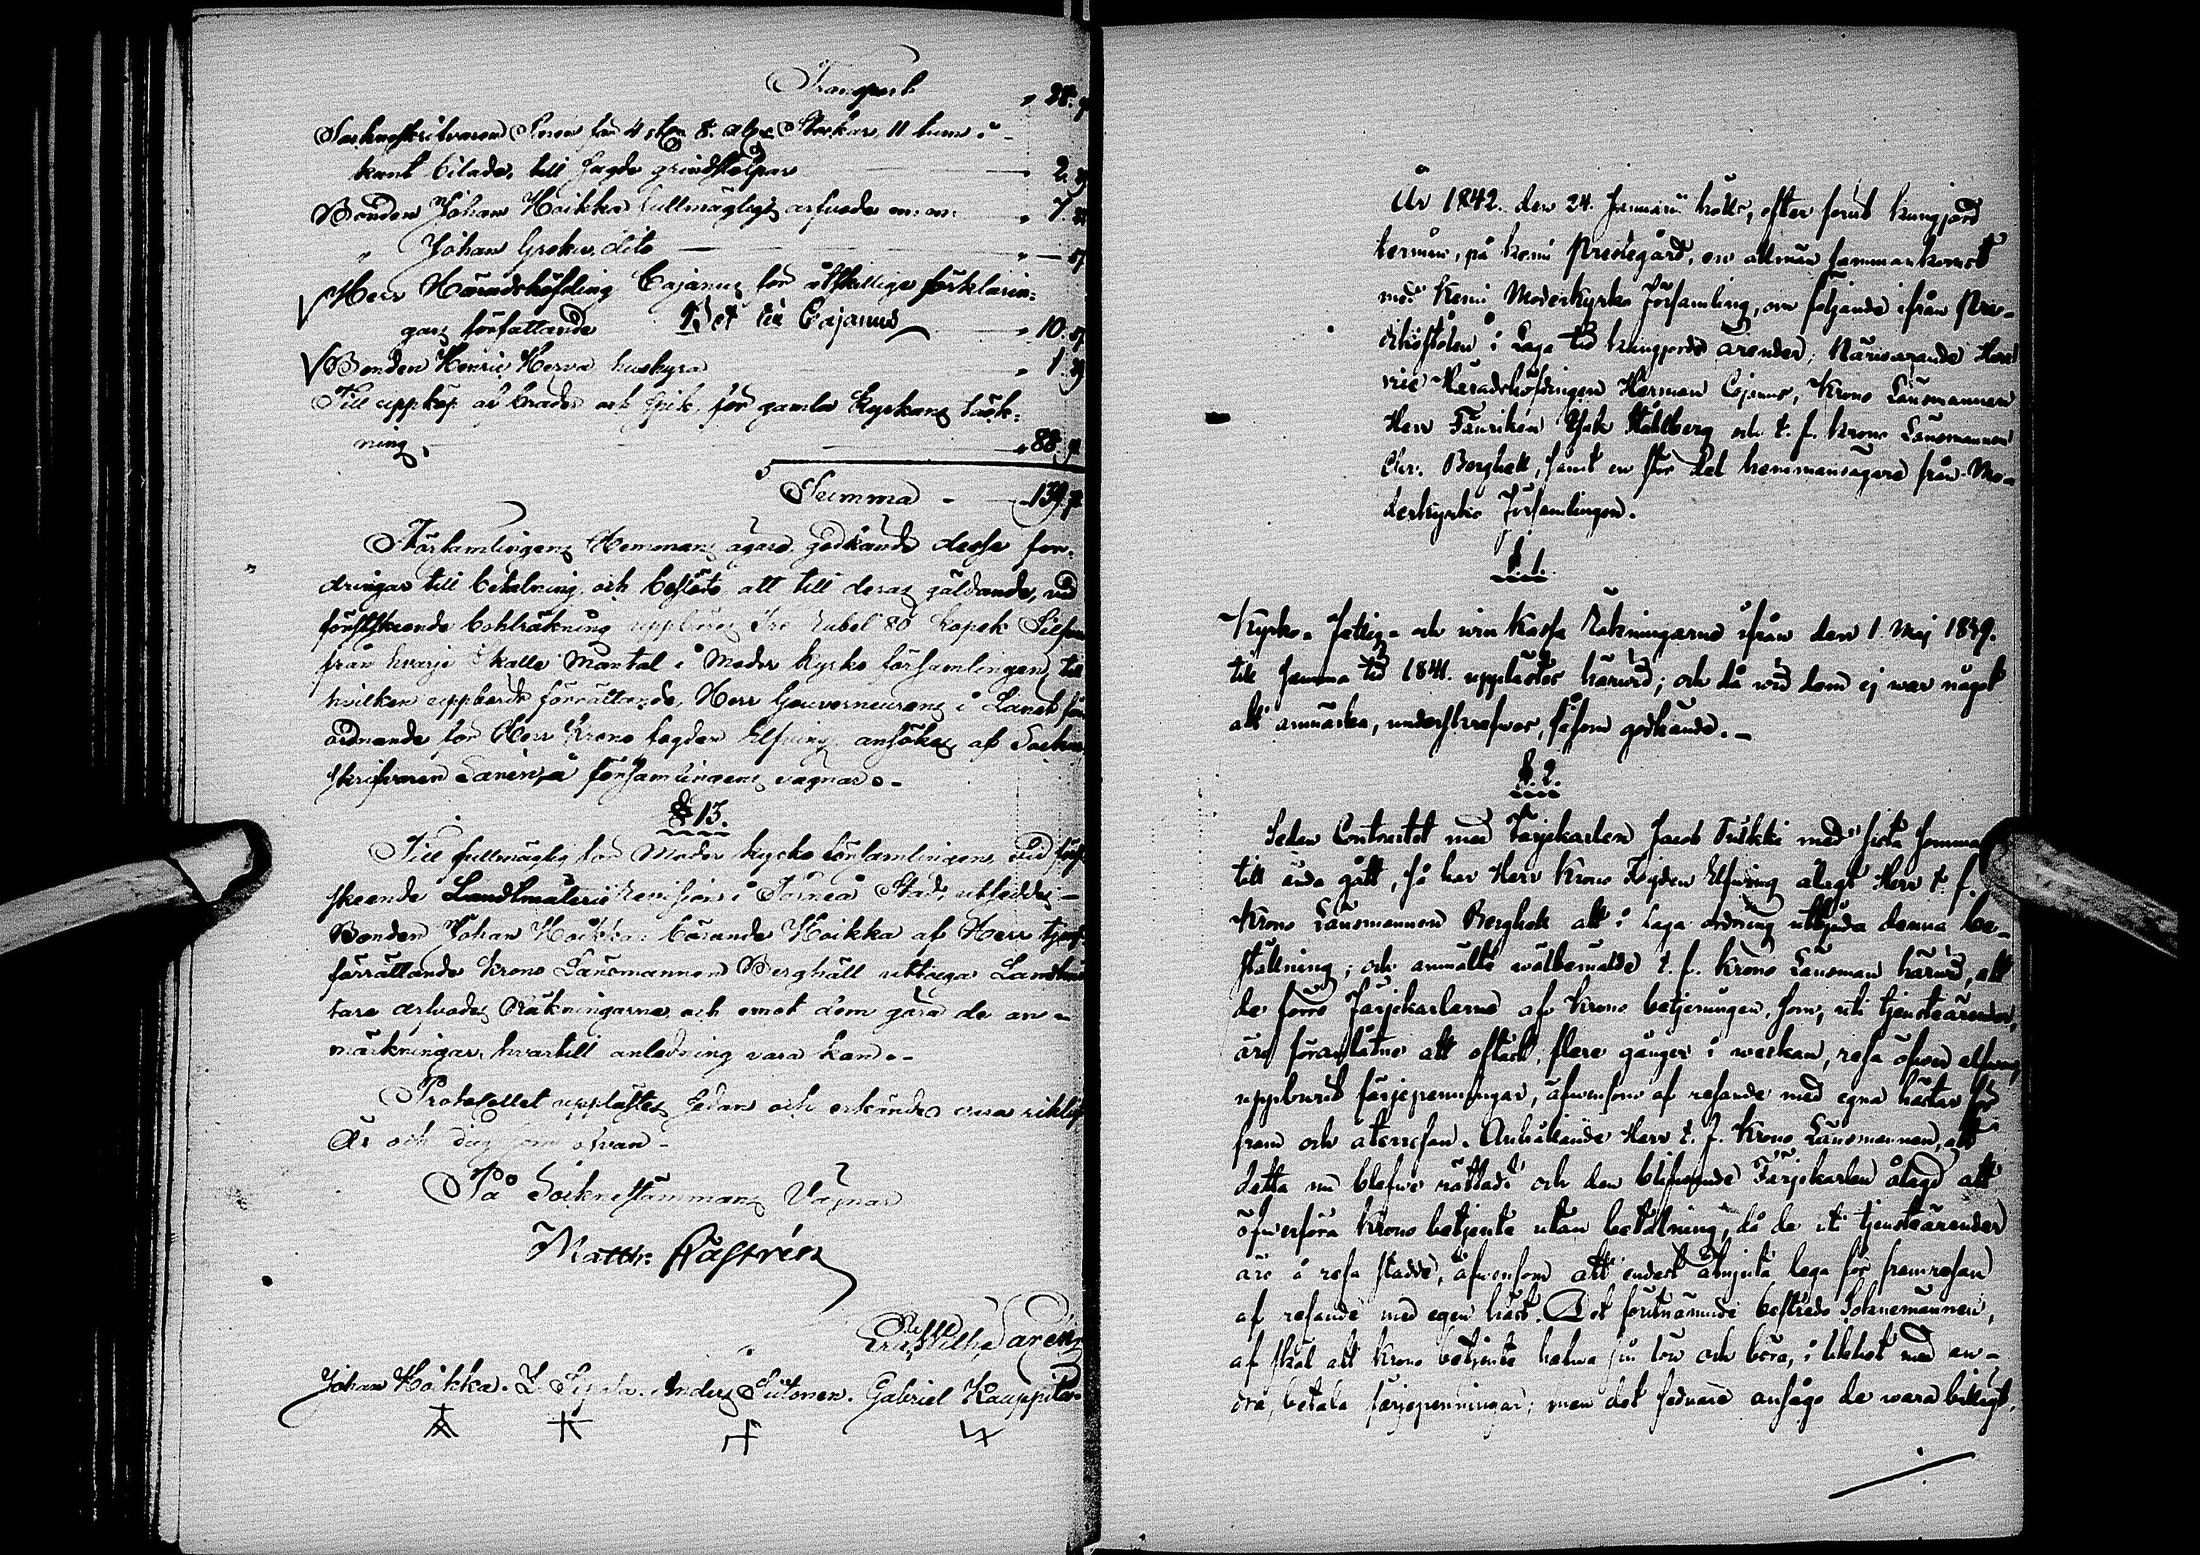 Transport " 28.
Socknskrifvaren Saren för 4 st. 8. alns Stockar 11 tum i
kant bilade, till Sagde grindstolpar — " 2.
Bonden Johan Hoikka fullmägtigs arfvode m. m. " 7
" Johan Groku, dito — " —
Herr Häradshöfding Cajanus för åtskillige förklarin=
gars författande Bet till Cajanus — " 10.
Bonden Henric Herva hushyra " 1.
Till uppköp af bräder och spik, för gamla Kyrkans täck=
ning, — " 88.
Summa - 139.
Församlingens Hemmans ägare, godkände dessa for=
dringar till betalning och beslöto att till deras gäldande, vid
förstskeende bohlräkning uppbäres Tre Rubel 80 Kopek Silfver
från hvarje Skatte Mantal i Moder Kyrko församlingen, till
hvilken uppbörds förrättande, Herr Gouverneurens i Länet för
ordnande för Herr Krono fogden Elfving ansökes af Sockne
skrifvaren Sarén, å församlingens vägnar.-
§ 13.
Till fullmägtig för Moder kyrko församlingen, vid först
skeende Landtmäterie Revision i Torneå Stad, utseddes -
Bonden Johan Hoikka, börande Hoikka af Herr tjenst
förrättande Krono Länsmannen Berghäll uttaga Landtmä
tare arfvodes Räkningarne och emot dem göra de an=
märkningar, hvartill anledning vara kan.-
Protokollet upplästes sedan och erkändes vara riktigt
År och dag som ofvan -
På Sockne stämmans Vägnar
Matth. Castrén
Eric Wilh. Sarén
Johan Hoikka. Anders Sutonen. Gabriel Kauppila.
År 1842. den 24. Januarii hölls, efter förut kungjord
termin, på Kemi Prestegård, en allmän sammankomst
med Kemi Moderkyrko Församling, om följande ifrån Pre-
dikostolen i Laga tid kungjorde ärender; Närvarande Herr
vice Häradshöfdingen Herman Cajanus, Krono Länsmannen
Herr Fänriken Isak Ståhlberg och t. f. Krono Länsmannen
Chr. Berghäll, samt en stor del hemmansägare från Mo-
derkyrko Församlingen.
§. 1.
Kyrko- Fattig- och vin Kassa Räkningarne ifrån den 1 Maj 1839.
till samma tid 1841. upplästes härvid; och då vid dem ej war något
att anmärka, underskrefwos, såsom godkände. -
§. 2.
Sedan Contractet med Färjekarlen Jacob Tuikki med sista sommar
till ända gått, så har Herr Krono Fogden Elfving ålagt Herr t. f.
Krono Länsmannen Berghäll att i Laga ordning utbjuda denna be-
ställning; och anmälte wälbemälde t. f. Krono Länsman härvid, att
de förre Färjekarlarne af Krono betjeningen, som, uti tjensteärender,
äro föranlåtne att oftast, flere gånger i weckan, resa öfwer elfven,
uppburit färjepenningar, äfwensom af resande med egna hästar för
fram och återresan. Anhållande Herr t. f. Krono Länsmannen, att
detta nu blefwe rättadt och den blifwande Färjekarlen ålagd att
öfwerföra Krono betjente utan betalning, då de uti tjensteärender
äro å resa stadde, äfwensom att endast åtnjuta lega för framresan
af resande med egen häst. Det förutnämnde bestredo Soknemännen,
af skäl att Krono betjente hafwa sin lön och böra, i likhet med an-
dra, betala färjepenningar; men det sednare ansågo de wara billigt,